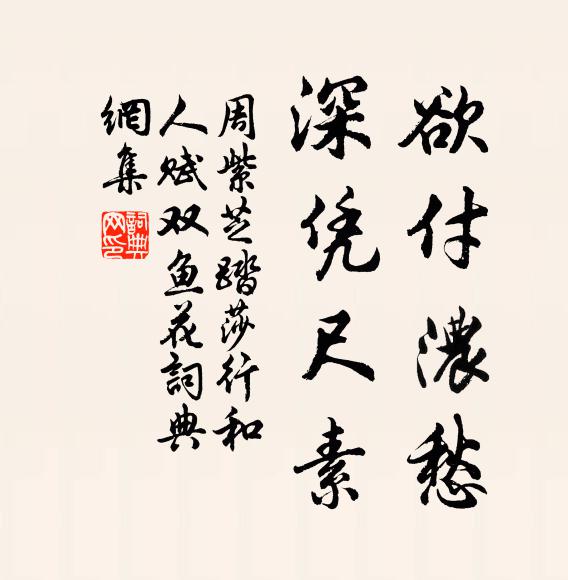 欲付濃愁
深凭尺素
周紫芝踏莎行和
人赋双鱼花詞典
網集
詞典
网印